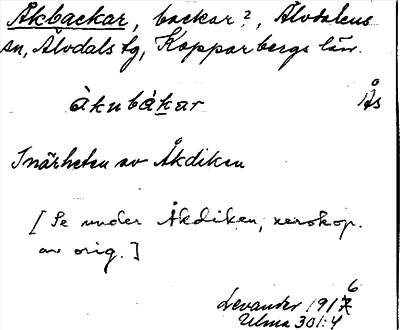 Åkbackar, backar?, Älvdalens
sn, Älvdals tg, Kopparbergs län.
àkubákar Ås
I närheten av Åkdiken
[Se under Åkdiken, xerokop.
av orig.]
6
Levander 1917
Ulma 301:4